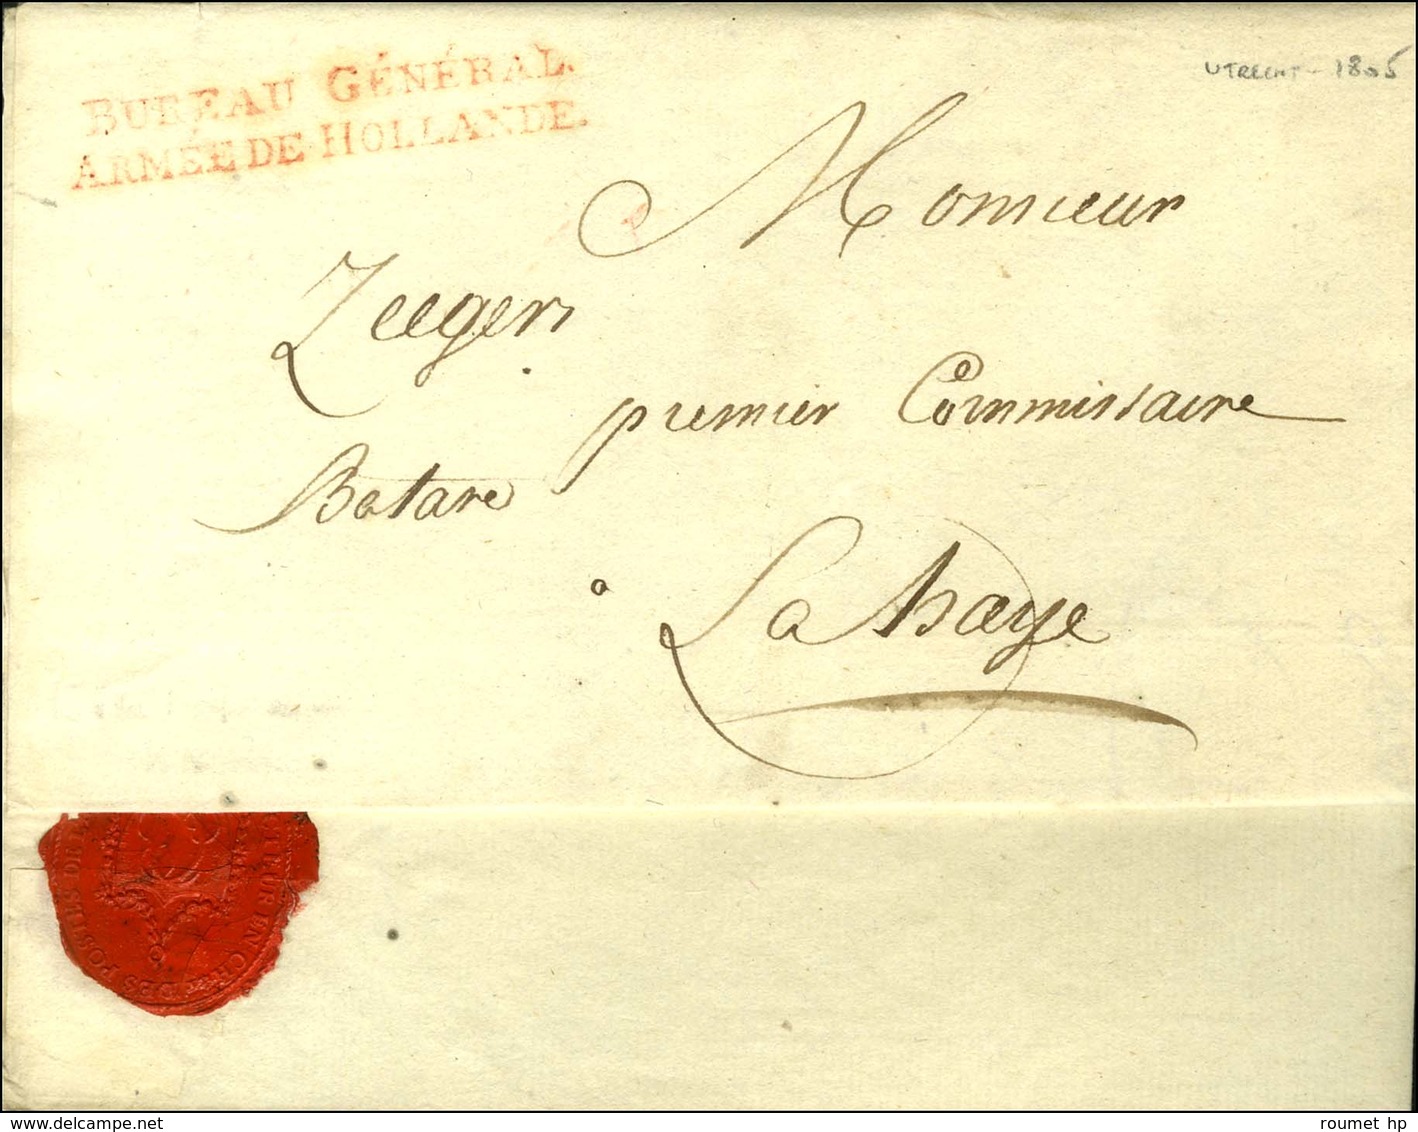 BUREAU GÉNÉRAL.
ARMÉE DE HOLLANDE.
UTRECHT - 1805
Monsieur
Zeegers
premier Commissaire
Batave
à
La haye
DES POSTES DE L
TEUR EN CH
delcampe.net
roumet hp